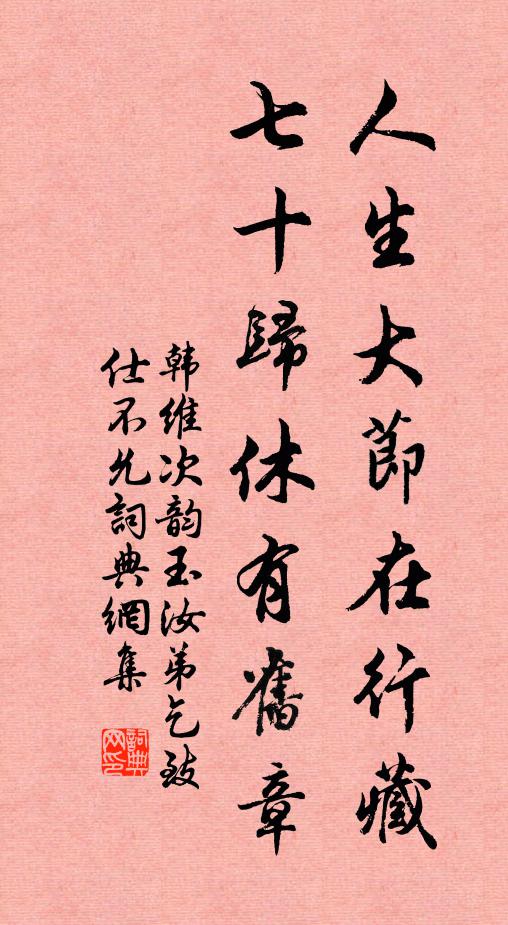 人生大節在行藏
七十歸休有舊章
韩維次韵玉汝弟乞致
仕不允詞典網集
詞典网印